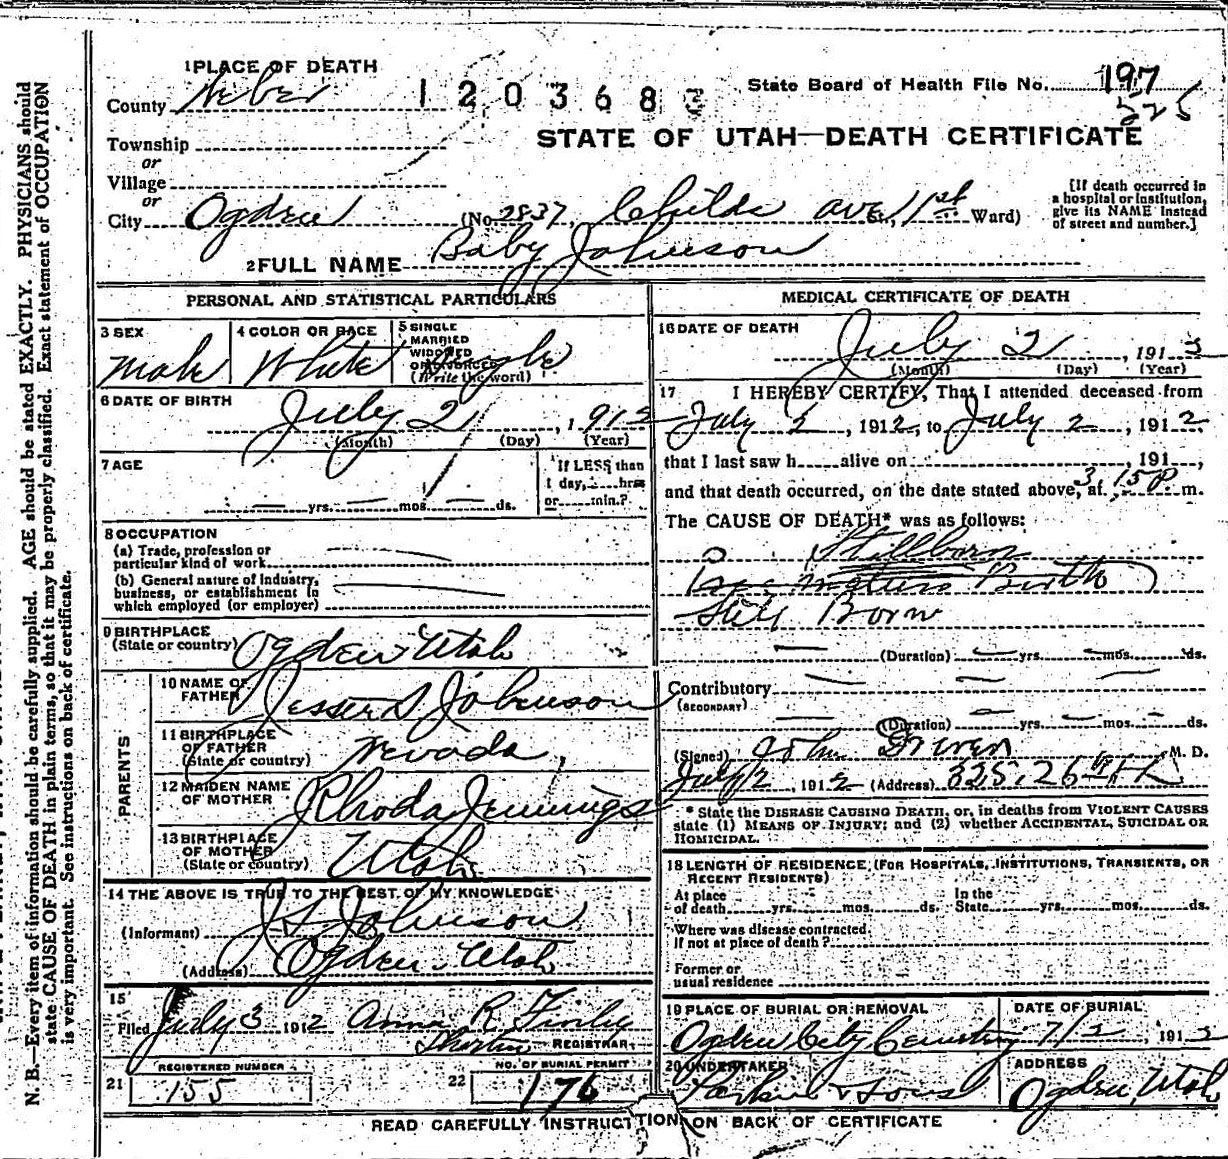 1 PLACE OF DEATH
County Weber
1 2 0 3 6 8
State Board of Health File No. 197
525
STATE OF UTAH—DEATH CERTIFICATE
Township
or
Village
or
City Ogden (No. 2837 Childs ave St., 11st Ward)
[If death occurred in a hospital or institution, give its NAME instead of street and number.]
2 FULL NAME Baby Johnson
PERSONAL AND STATISTICAL PARTICULARS
3 SEX Male
4 COLOR OR RACE White
5 SINGLE MARRIED WIDOWED OR DIVORCED (Write the word) Single
6 DATE OF BIRTH
July 2, 1912
(Month) (Day) (Year)
7 AGE
— yrs. — mos. — ds.
If LESS than 1 day, hrs. or min.?
8 OCCUPATION
(a) Trade, profession or particular kind of work
(b) General nature of industry, business, or establishment in which employed (or employer)
9 BIRTHPLACE (State or country) Ogden Utah
PARENTS
10 NAME OF FATHER Jesse S. Johnson
11 BIRTHPLACE OF FATHER (State or country) Nevada,
12 MAIDEN NAME OF MOTHER Rhoda Jennings
13 BIRTHPLACE OF MOTHER (State or country) Utah
14 THE ABOVE IS TRUE TO THE BEST OF MY KNOWLEDGE
(Informant) J S Johnson
(Address) Ogden Utah
15
Filed July 3 1912 Anna R.
REGISTRAR
REGISTERED NUMBER
21 155
NO. OF BURIAL PERMIT
22 176
MEDICAL CERTIFICATE OF DEATH
16 DATE OF DEATH
July 2, 191
(Month) (Day) (Year)
17 I HEREBY CERTIFY, That I attended deceased from
July 2, 1912, to July 2, 1912,
that I last saw h alive on , 191 ,
and that death occurred, on the date stated above, at 3.15 P m.
The CAUSE OF DEATH* was as follows:
Stillborn
Birth
Still Born
— (Duration) — yrs. — mos. — ds.
Contributory
(SECONDARY)
(Duration) yrs. mos. ds.
(Signed) John M. D.
July 2, 1912 (Address) 825. 26
* State the DISEASE CAUSING DEATH, or, in deaths from VIOLENT CAUSES
state (1) MEANS OF INJURY; and (2) whether ACCIDENTAL, SUICIDAL OR
HOMICIDAL.
18 LENGTH OF RESIDENCE (FOR HOSPITALS, INSTITUTIONS, TRANSIENTS, OR
RECENT RESIDENTS)
At place of death yrs. mos. ds. In the State yrs. mos. ds.
Where was disease contracted,
If not at place of death?
Former or
usual residence
19 PLACE OF BURIAL OR REMOVAL Ogden City Cemetery
DATE OF BURIAL 7/ , 191
20 UNDERTAKER Larkin & Sons
ADDRESS Ogden Utah
READ CAREFULLY INSTRUCTION ON BACK OF CERTIFICATE
N. B.—Every item of information should be carefully supplied. AGE should be stated EXACTLY. PHYSICIANS should
state CAUSE OF DEATH in plain terms, so that it may be properly classified. Exact statement of OCCUPATION
is very important. See instructions on back of certificate.